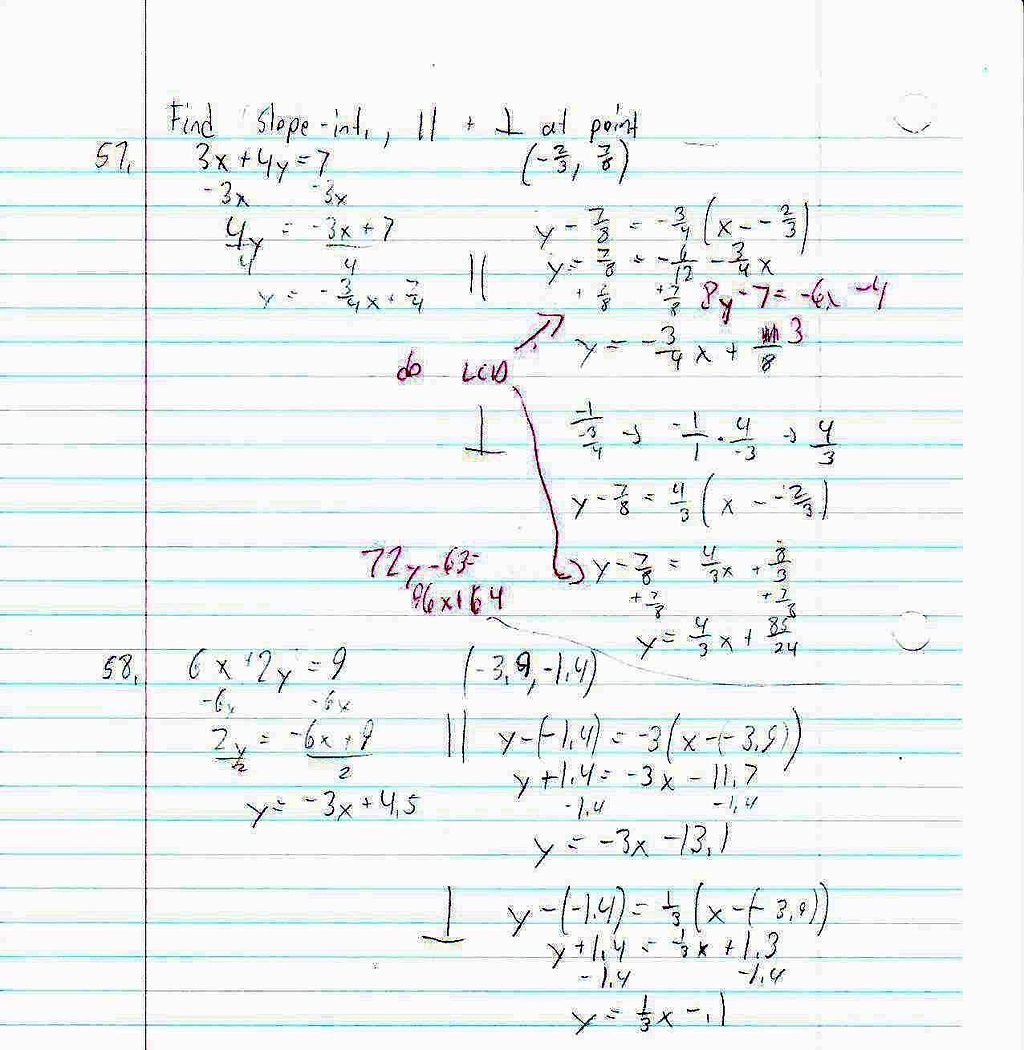 Find slope-int, || + ⊥ at point
57. 3x + 4y = 7 (-2/3, 7/8)
-3x -3x
4y/4 = -3x + 7/4
y = -3/4x + 7/4
|| y - 7/8 = -3/4(x - -2/3)
y = 7/8 = -6/12 - 3/4x
+7/8 +7/8 8y - 7 = -6x - 4
y = -3/4x + 3/8
do LCD
⊥ -1/(-3/4) → -1/1 · 4/-3 → 4/3
y - 7/8 = 4/3(x - -2/3)
y - 7/8 = 4/3x + 8/3
+7/8 +7/8
72y - 63 =
96x + 64
y = 4/3x + 85/24
58. 6x + 2y = 9 (-3.9, -1.4)
-6x -6x
2y/2 = -6x + 9/2
y = -3x + 4.5
|| y - (-1.4) = -3(x - (-3.9))
y + 1.4 = -3x - 11.7
-1.4 -1.4
y = -3x - 13.1
⊥ y - (-1.4) = 1/3(x - (-3.9))
y + 1.4 = 1/3x + 1.3
-1.4 -1.4
y = 1/3x - .1